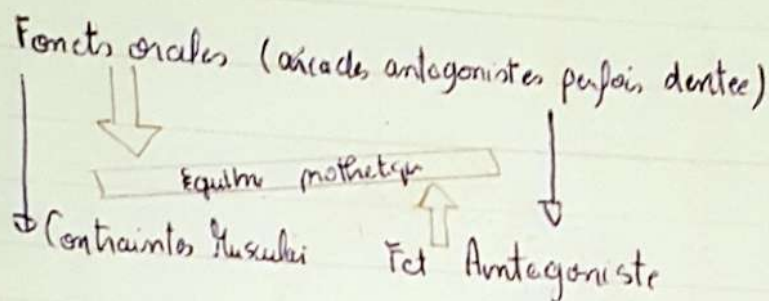 Foncts orales (arcades antagonistes parfois dentee)
Equilm prothetiqu
Contraintes Musculai Fct Antagoniste